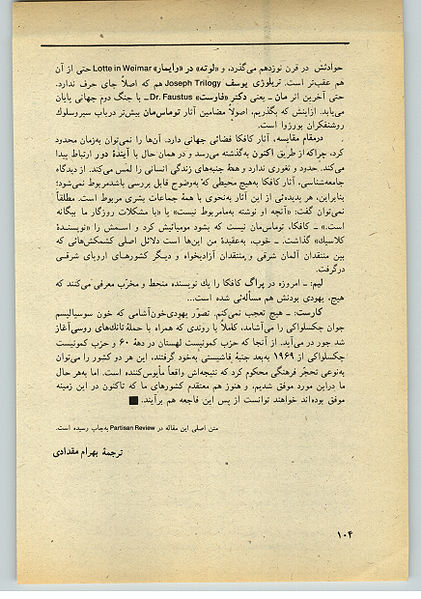 حوادثش در قرن نوزدهم می‌گذرد، و «لوته» در «وایمار» Lotte in Weimar حتی از آن
هم عقب‌تر است. تریلوژی یوسف Joseph Trilogy هم که اصلاً جای حرف ندارد.
حتی آخرین اثر مان ــ یعنی دکتر «فاوست» Dr. Faustus ــ با جنگ دوم جهانی پایان
می‌یابد. ازاینش که بگذریم، اصولاً مضامین آثار توماس‌مان بیش‌تر درباب سیروسلوك
روشنفکران بورژوا است.
درمقام مقایسه، آثار کافکا فضائی جهانی دارد. آن‌ها را نمی‌توان به‌زمان محدود
کرد، چراکه از طریق اکنون به‌گذشته می‌رسد و در همان حال با آیندهٔ دور ارتباط پیدا
می‌کند. حدود و ثغوری ندارد و همهٔ جنبه‌های زندگی انسانی را لمس می‌کند. از دیدگاه
جامعه‌شناسی، آثار کافکا به‌هیچ محیطی که به‌وضوح قابل بررسی باشد مربوط نمی‌شود؛
بنابراین، هر پدیده‌ئی از این آثار به‌نحوی با همهٔ جماعات بشری مربوط است. مطلقاً
نمی‌توان گفت: «آنچه او نوشته به‌ما مربوط نیست» یا «با مشکلات روزگار ما بیگانه
است.» ــ کافکا، توماس‌مان نیست که بشود مومیائیش کرد و اسمش را «نویسندهٔ
کلاسیك» گذاشت. ــ خوب، به‌عقیدهٔ من این‌ها است دلائل اصلی کشمکش‌هائی که
بین منتقدان آلمان شرقی و منتقدان آزادیخواه و دیگر کشورهای اروپای شرقی
درگرفت.
لیم: ــ امروزه در پراگ کافکا را یك نویسنده منحط و مخرّب معرفی می‌کنند که
هیچ، یهودی بودنش هم مسأله‌ئی شده است...
کارست: ــ هیچ تعجب نمی‌کنم. تصوّر یهودی‌خون‌آشامی که خون سوسیالیسم
جوان چکسلواکی را می‌آشامد، کاملاً با روندی که همراه با حملهٔ تانك‌های روسی آغاز
شد جور در می‌آید. از آنجا که حزب کمونیست لهستان در دههٔ ۶۰ و حزب کمونیست
چکسلواکی از ۱۹۶۹ به‌بعد جنبهٔ فاشیستی به‌خود گرفتند، این هر دو کشور را می‌توان
به‌نوعی تحجّر فرهنگی محکوم کرد که نتیجه‌اش واقعاً مأیوس‌کننده است. اما به‌هر حال
ما دراین مورد موفق شدیم، و هنوز هم معتقدم کشورهای ما که تاکنون در این زمینه
موفق بوده‌اند خواهند توانست از پس این فاجعه هم برآیند. ■
متن اصلی این مقاله در Partisan Review به‌چاپ رسیده است.
ترجمهٔ بهرام مقدادی
۱۰۴